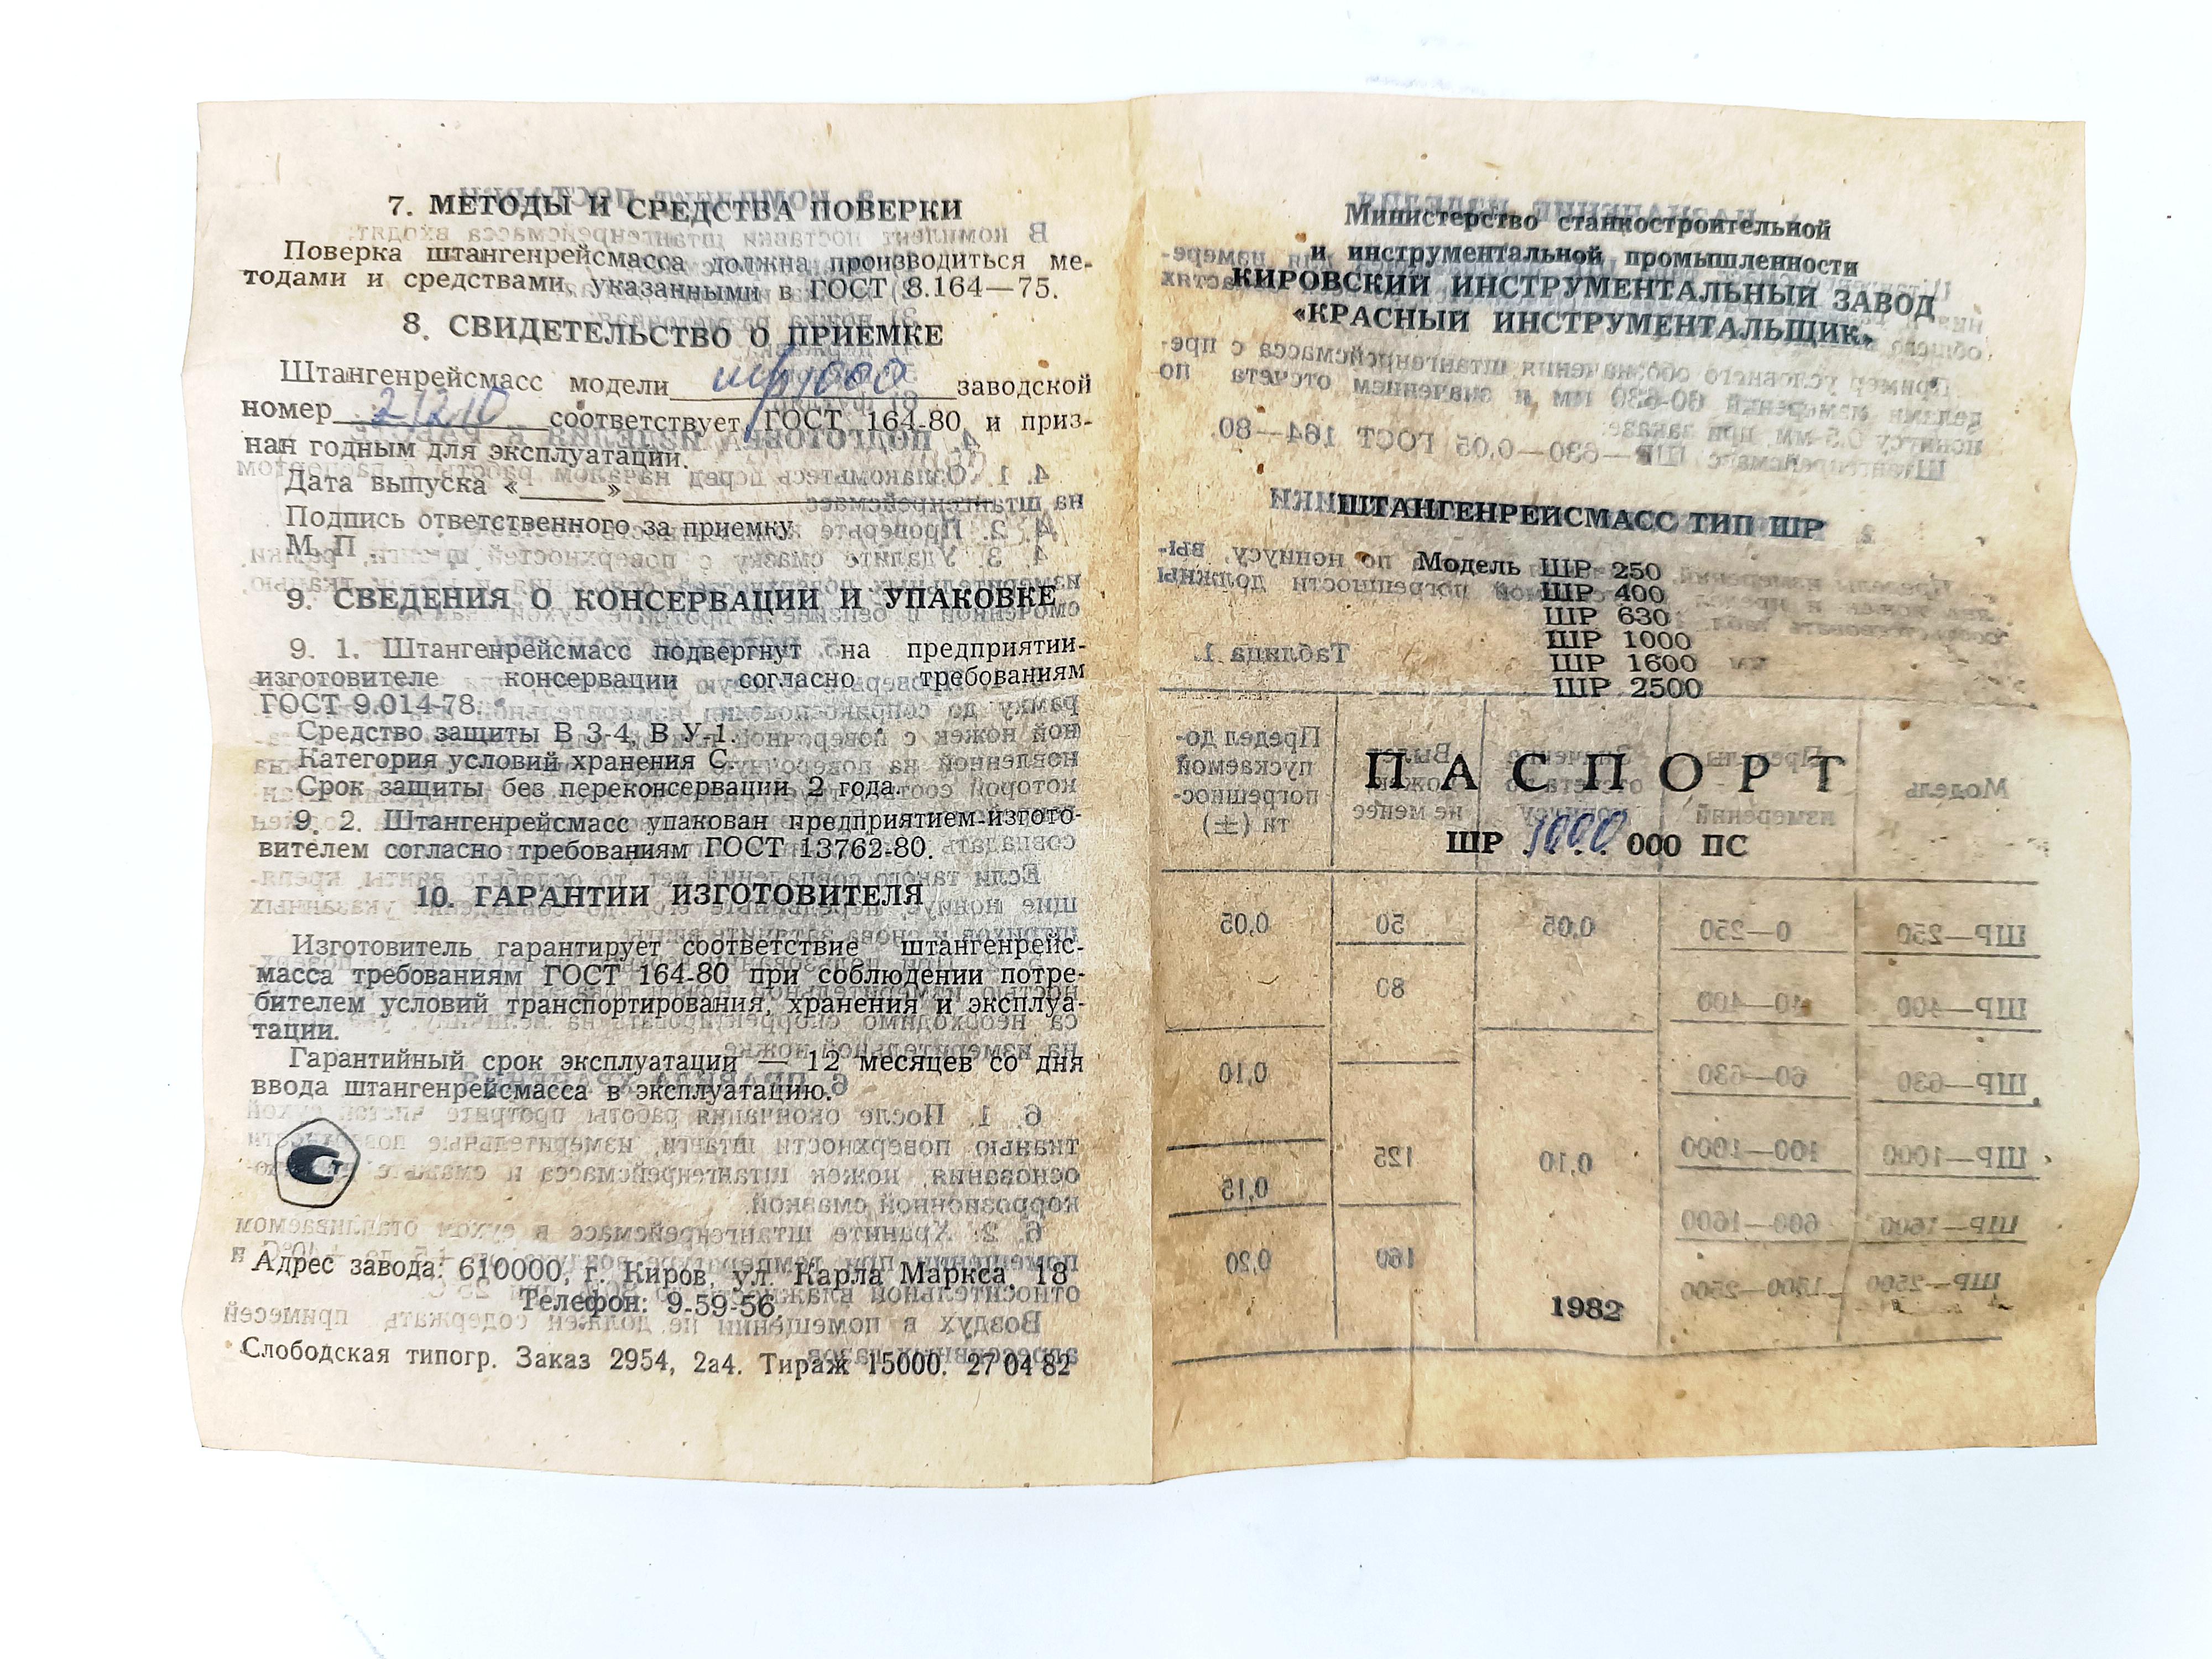 7. МЕТОДЫ И СРЕДСТВА ПОВЕРКИ
Поверка штангенрейсмасса должна производиться ме-
тодами и средствами, указанными в ГОСТ 8.164—75.
8. СВИДЕТЕЛЬСТВО О ПРИЕМКЕ
Штангенрейсмасс модели шр1000 заводской
номер 21210 соответствует ГОСТ 164-80 и приз-
нан годным для эксплуатации.
Дата выпуска «______»
Подпись ответственного за приемку
М. П.
9. СВЕДЕНИЯ О КОНСЕРВАЦИИ И УПАКОВКЕ
9. 1. Штангенрейсмасс подвергнут на предприятии-
изготовителе консервации согласно требованиям
ГОСТ 9.014-78.
Средство защиты В З-4, В У-1.
Категория условий хранения С.
Срок защиты без переконсервации 2 года.
9. 2. Штангенрейсмасс упакован предприятием-изгото-
вителем согласно требованиям ГОСТ 13762-80.
10. ГАРАНТИИ ИЗГОТОВИТЕЛЯ
Изготовитель гарантирует соответствие штангенрейс-
масса требованиям ГОСТ 164-80 при соблюдении потре-
бителем условий транспортирования, хранения и эксплуа-
тации.
Гарантийный срок эксплуатации — 12 месяцев со дня
ввода штангенрейсмасса в эксплуатацию.
Адрес завода: 610000, г. Киров, ул. Карла Маркса, 18
Телефон: 9-59-56.
Слободская типогр. Заказ 2954, 2а4. Тираж 15000. 27 04 82
Министерство станкостроительной
и инструментальной промышленности
КИРОВСКИЙ ИНСТРУМЕНТАЛЬНЫЙ ЗАВОД
«КРАСНЫЙ ИНСТРУМЕНТАЛЬЩИК»
ШТАНГЕНРЕЙСМАСС ТИП ШР
Модель ШР 250
ШР 400
ШР 630
ШР 1000
ШР 1600
ШР 2500
ПАСПОРТ
ШР 1000 000 ПС
1982